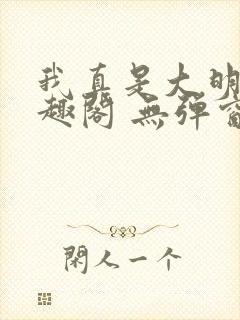 我真是大明
趣阁 無彈窗
閑人一个